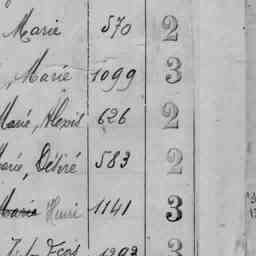 Marie 570 2
, Marie 1099 3
Marie, Alexis 626 2
Marie, Désiré 583 2
Marie Henri 1141 3
3